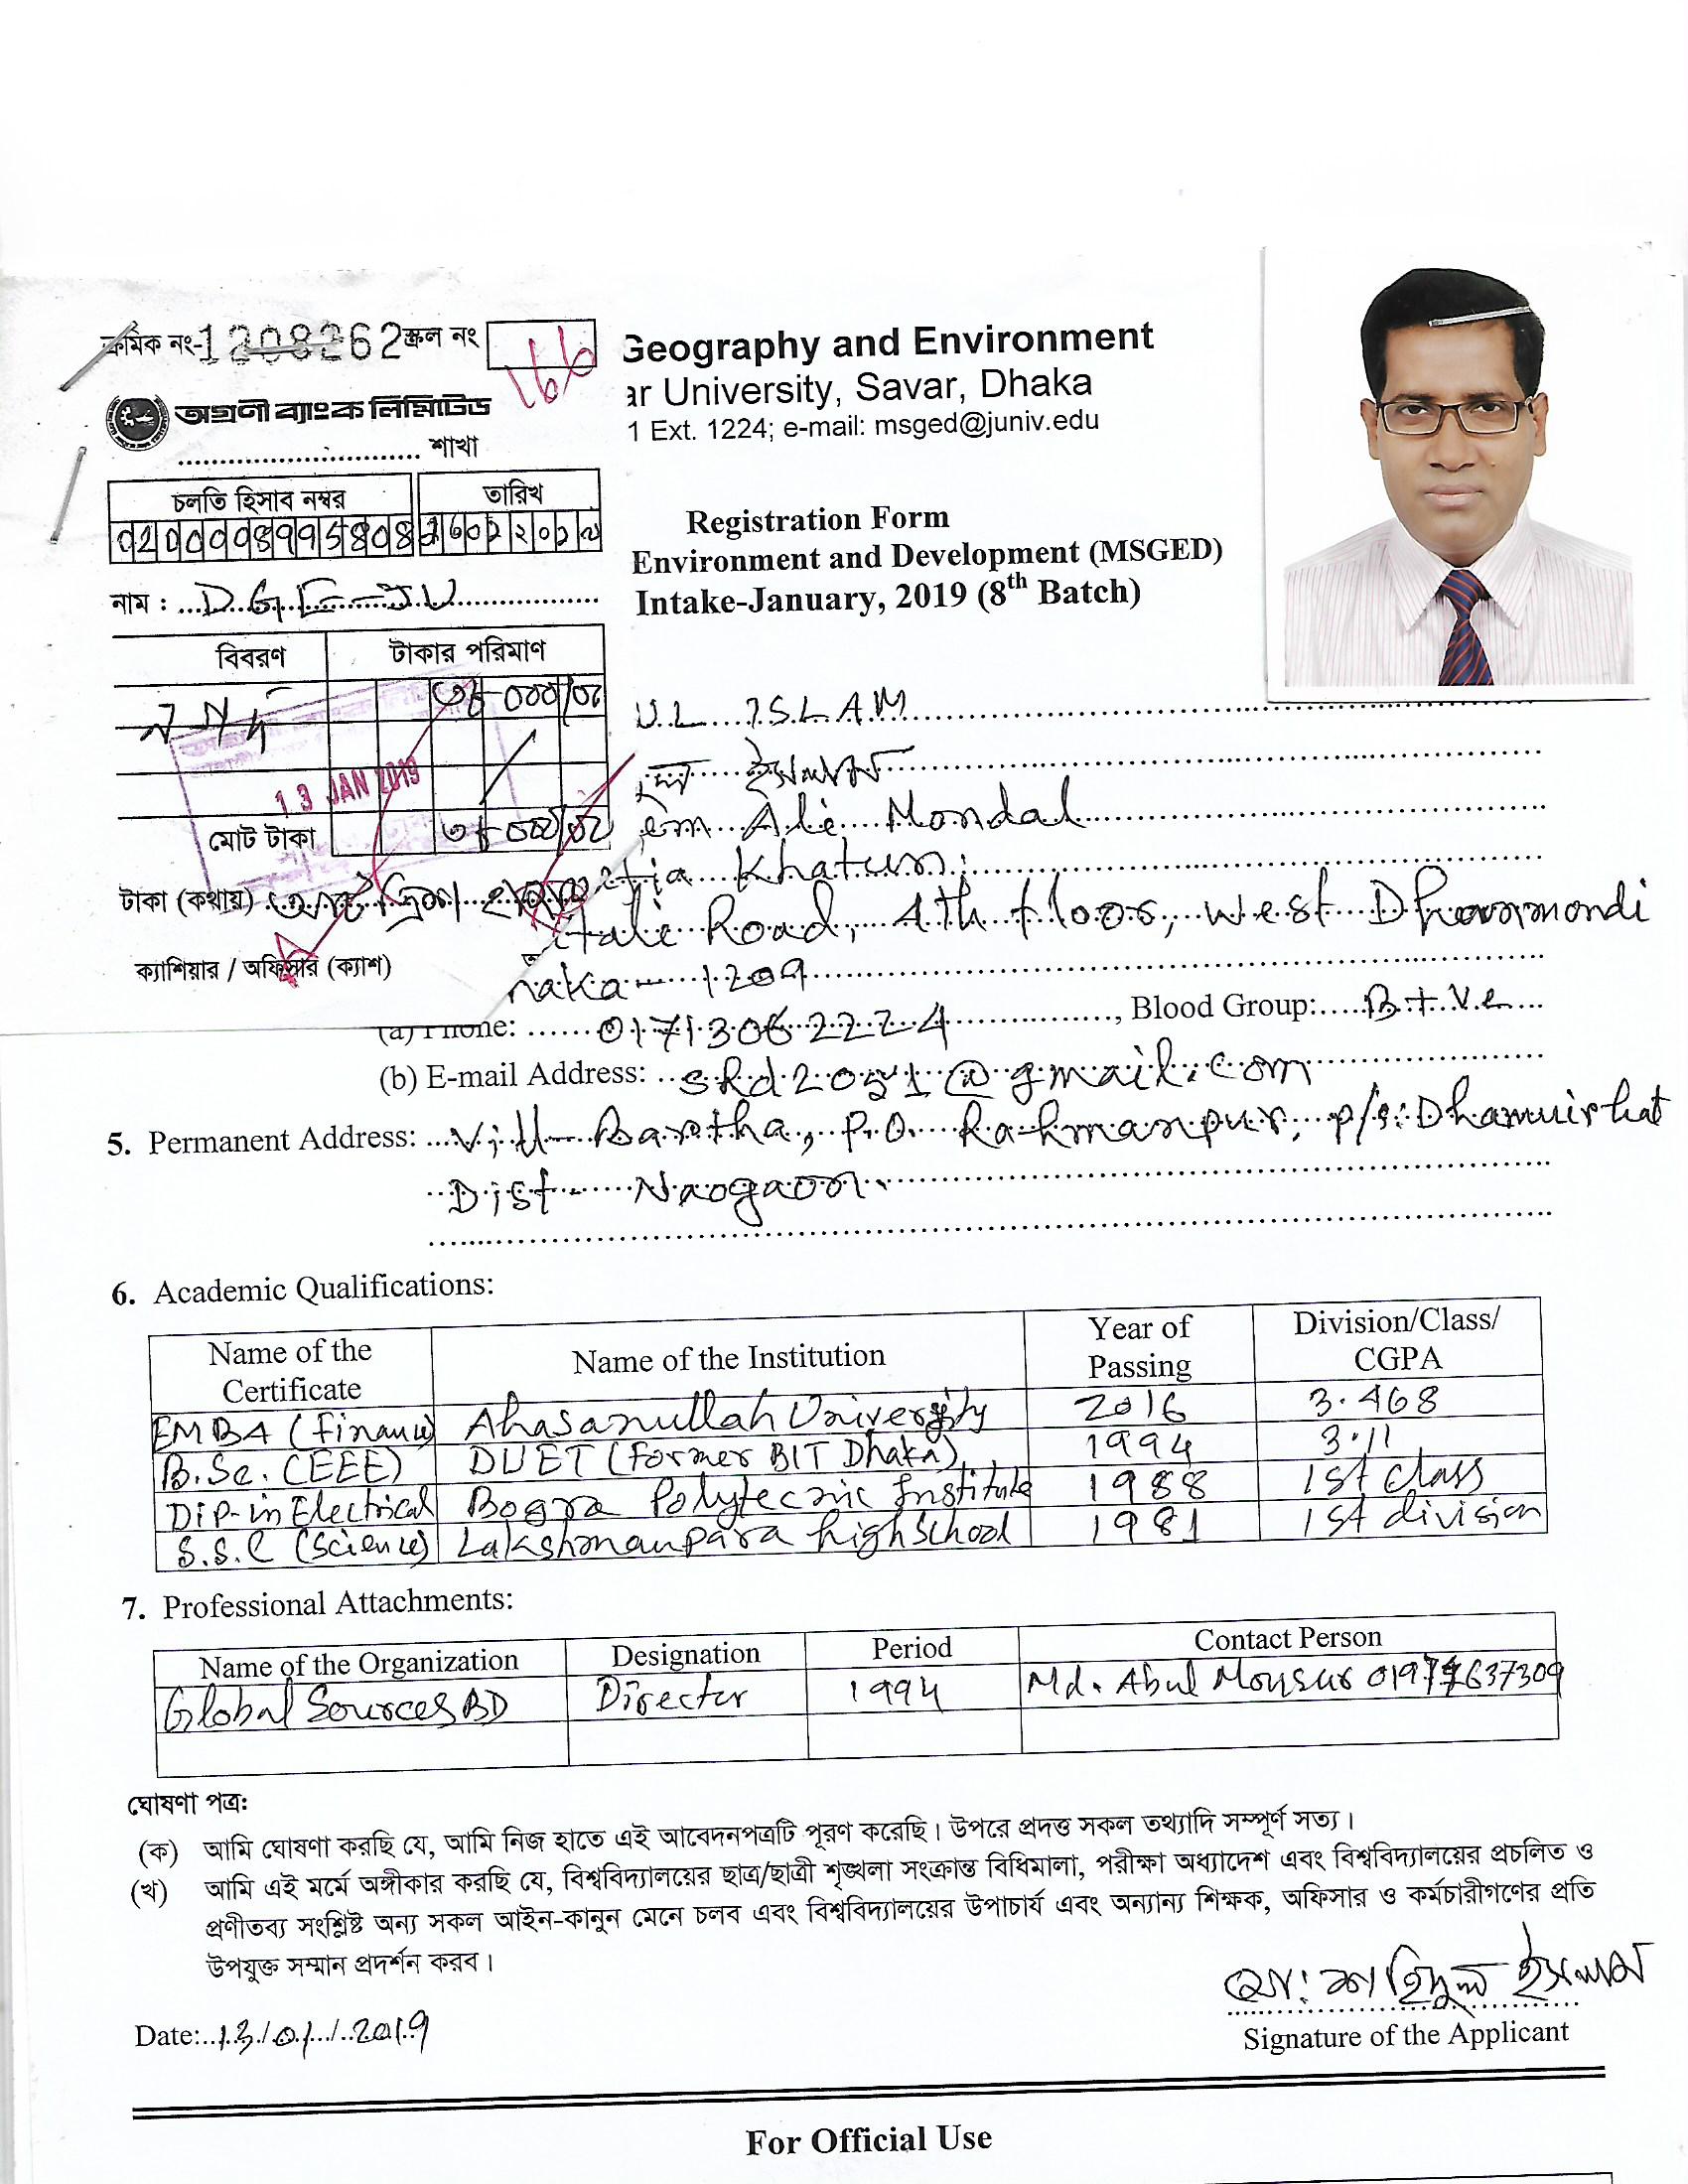 ক্রমিক নং-1208262 স্ক্রল নং 166
অগ্রণী ব্যাংক লিমিটেড
শাখা
চলতি হিসাব নম্বর তারিখ
নাম : D.G.E-JU
বিবরণ টাকার পরিমাণ
13 JAN 2019
মোট টাকা
টাকা (কথায়)
ক্যাশিয়ার / অফিসার (ক্যাশ)
Geography and Environment
ar University, Savar, Dhaka
1 Ext. 1224; e-mail: msged@juniv.edu
Registration Form
Environment and Development (MSGED)
Intake-January, 2019 (8th Batch)
UL ISLAM
ইসলাম
em Ali Mondal
Khatun
Road, 4th floor, West Dhanmondi
haka - 1209
(a) Phone: 01713062224, Blood Group: B+Ve
(b) E-mail Address: srd2051@gmail.com
5. Permanent Address: Vill- Bartha, P.O. Rahmanpur, p/s: Dhamuirhat
Dist- Naogaon.
6. Academic Qualifications:
Name of the Certificate Name of the Institution Year of Passing Division/Class/ CGPA
EMBA (Finance) Ahasanullah University 2016 3.468
B.Sc. (EEE) DUET (Former BIT Dhaka) 1994 3.11
Dip-in Electrical Bogra Polytecnic Institute 1988 1st class
S.S.C (Science) Lakshmanpara high School 1981 1st division
7. Professional Attachments:
Name of the Organization Designation Period Contact Person
Global Sources BD Director 1994 Md. Abul Monsur
ঘোষণা পত্র:
(ক) আমি ঘোষণা করছি যে, আমি নিজ হাতে এই আবেদনপত্রটি পূরণ করেছি। উপরে প্রদত্ত সকল তথ্যাদি সম্পূর্ণ সত্য।
(খ) আমি এই মর্মে অঙ্গীকার করছি যে, বিশ্ববিদ্যালয়ের ছাত্র/ছাত্রী শৃঙ্খলা সংক্রান্ত বিধিমালা, পরীক্ষা অধ্যাদেশ এবং বিশ্ববিদ্যালয়ের প্রচলিত ও
প্রণীতব্য সংশ্লিষ্ট অন্য সকল আইন-কানুন মেনে চলব এবং বিশ্ববিদ্যালয়ের উপাচার্য এবং অন্যান্য শিক্ষক, অফিসার ও কর্মচারীগণের প্রতি
উপযুক্ত সম্মান প্রদর্শন করব।
মোঃ শহিদুল ইসলাম
Date: 13/01/2019
Signature of the Applicant
For Official Use